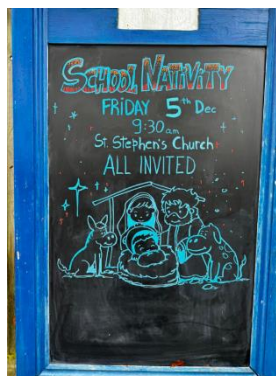 SCHOOL NATIVITY
FRIDAY 5th Dec
9:30am
St. Stephen's Church
ALL INVITED